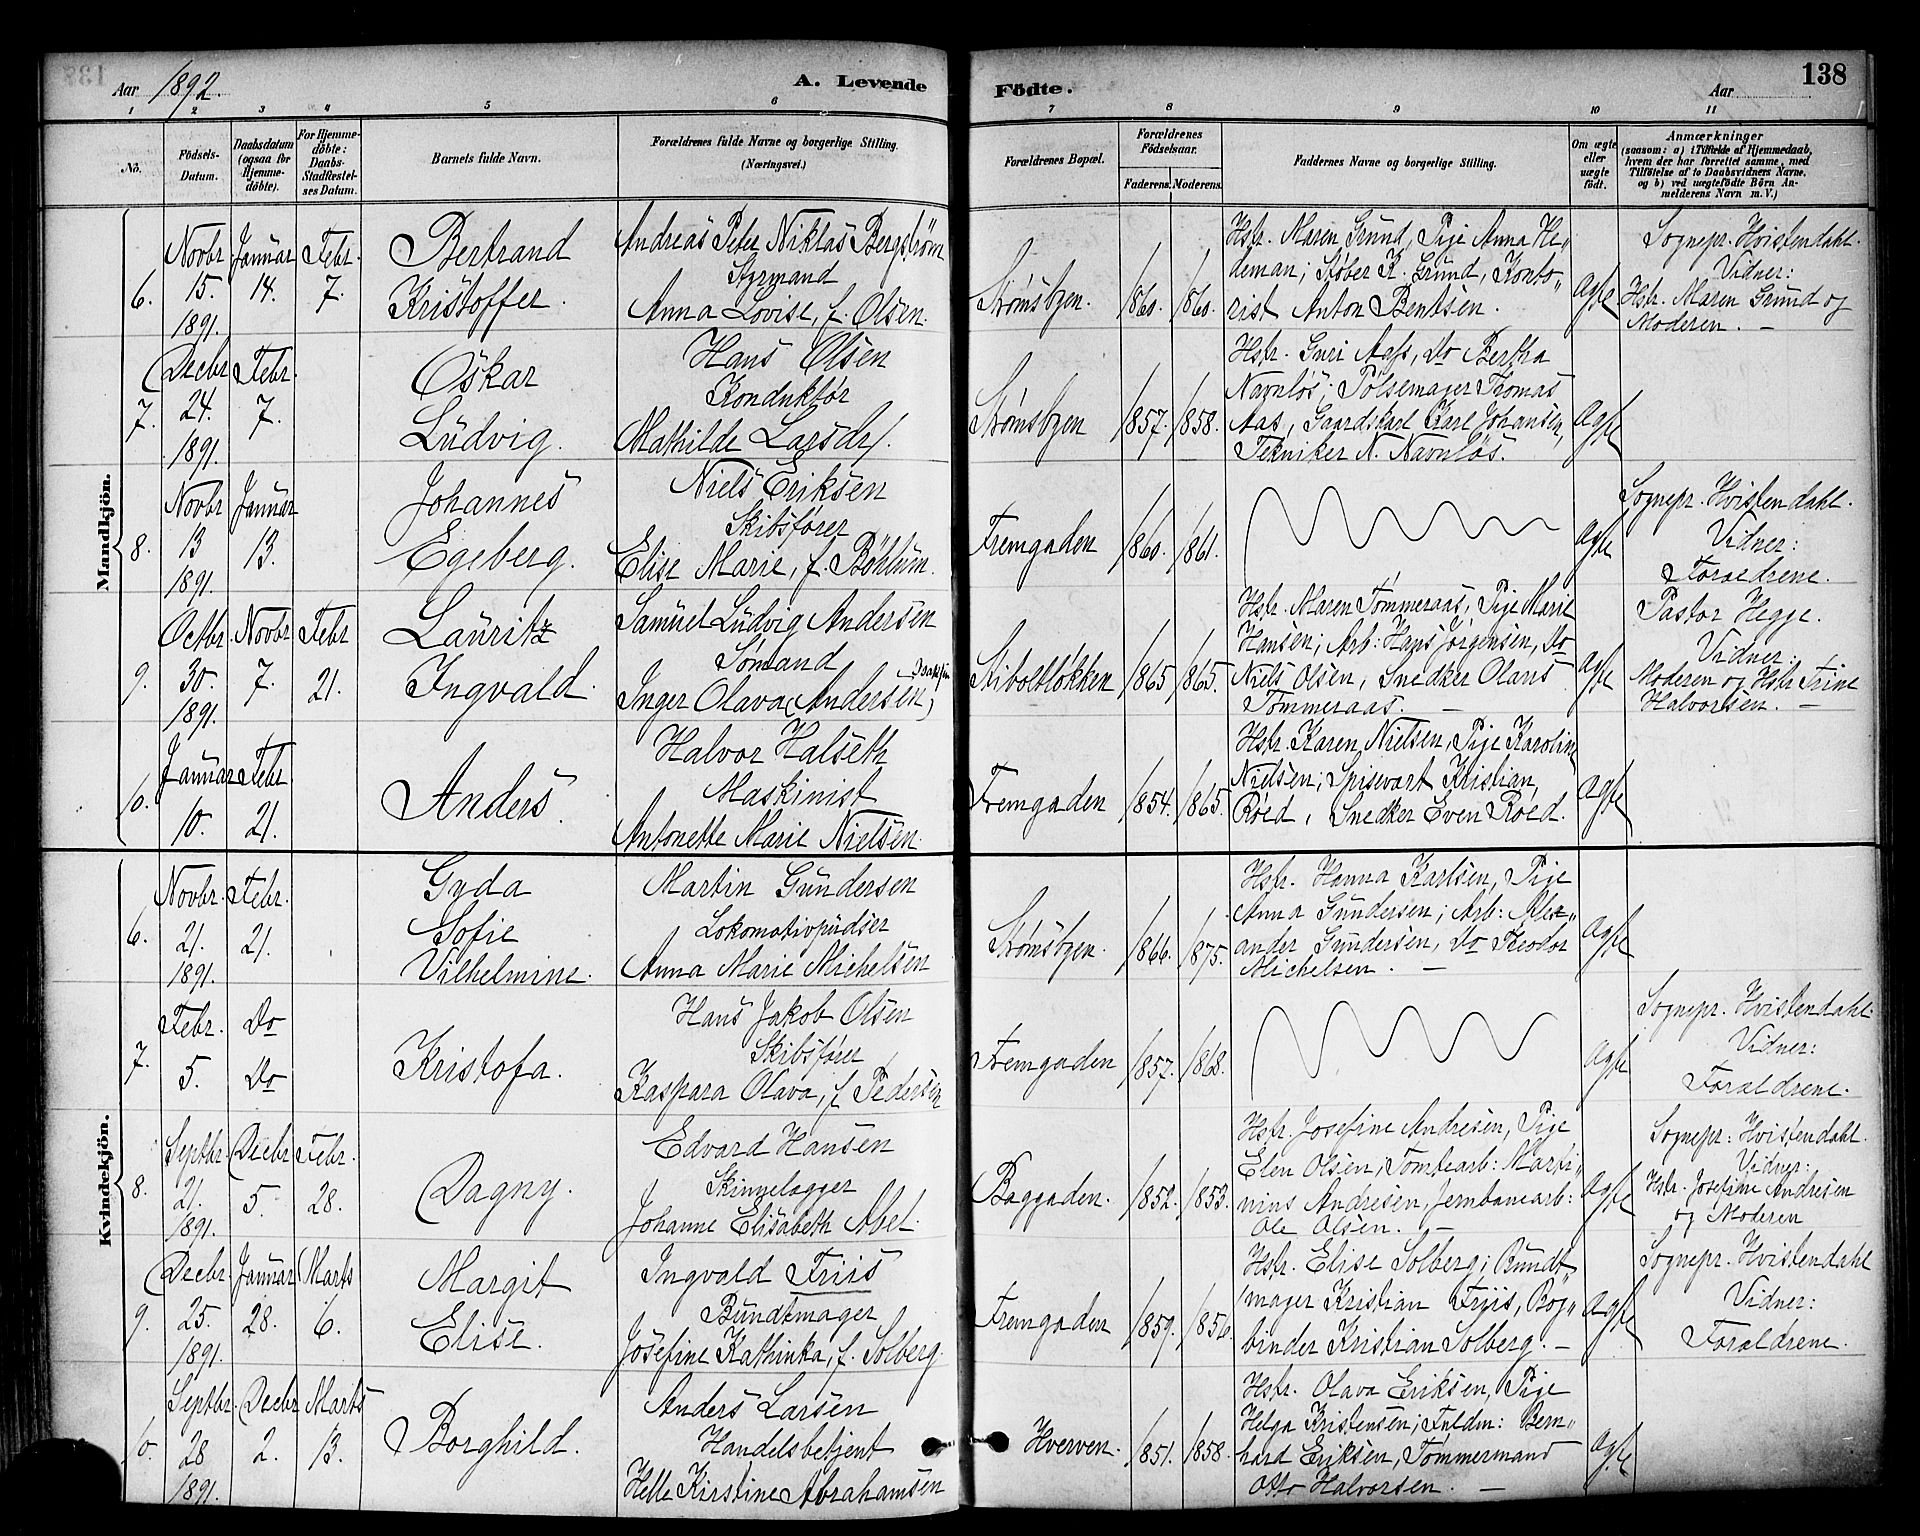 Aar 1892. A. Levende
Födte. Aar 138
1 2 3 4 5 6 7 8 9 10 11
No.
Födsels-
Datum.
Daabsdatum
(ogsaa for
Hjemme-
döbte).
For Hjemme-
döbte:
Daabs-
Stadfæstel-
ses Datum.
Barnets fulde Navn.
Forældrenes fulde Navne og borgerlige Stilling.
(Næringsvei.)
Forældrenes Bopæl.
Forældrenes
Födselsaar.
Faderens. Moderens.
Faddernes Navne og borgerlige Stilling.
Om ægte
eller
uægte
født.
Anmærkninger
(saasom: a) i Tilfælde af Hjemmedaab,
hvem der har forrettet samme, med
Tilföielse af to Daabsvidners Navne,
og b) ved uægtefödte Börn An-
melderens Navn m. V.)
Mandkjön.
6.
Novbr
15.
1891.
Januar
14.
Febr.
7.
Bertrand
Kristoffer.
Andreas Peter Niklas Bergström
Styrmand
Anna Lovise, f. Olsen.
Strømsbyen.
1860. 1860.
Hstr. Maren Grund, Pige Anna He„
deman; Støber K. Grund, Konto„
rist Anton Bentsen.
Ægte
Sognepr. Hvistendahl.
Vidner:
Hstr. Maren Grund og
Moderen. —
7.
Decbr
24.
1891.
Febr.
7.
Oskar
Ludvig.
Hans Olsen
Konduktør
Mathilde Larsdr.
Strømsbyen
1857. 1858.
Hstr. Guri Aas, Do Bertha
Navnløs; Pølsemager Thomas
Aas, Gaardskarl Karl Johansen,
Tekniker N. Navnløs.
Ægte
8.
Novbr
13
1891.
Januar
13.
Johannes
Egeberg.
Niels Eriksen
Skibsfører
Elise Marie, f. Bøhlum.
Fremgaden
1860. 1861.
Ægte
Sognepr. Hvistendahl.
Vidner:
Forældrene.
9.
Octbr
30.
1891.
Novbr
7.
Febr
21.
Lauritz
Ingvald.
Samuel Ludvig Andersen
Sømand
Inger Olava (Andersen)
Stiboltløkken
1865 1865.
Hstr. Maren Tømmeraas, Pige Marie
Hansen; Arb: Hans Jørgensen, Do
Niels Olsen, Snedker Olaus
Tømmeraas. —
Ægte
Pastor Hegge.
Vidner:
Moderen og Hstr Trine
Halvorsen. —
10.
Januar
10.
Febr
21.
Anders.
Halvor Halseth
Maskinist
Antonette Marie Nielsen.
Fremgaden
1854. 1865.
Hstr. Karen Nielsen, Pige Karolin
Nielsen; Spisevært Kristian
Röed, Snedker Even Roed.
Ægte
Kvindekjön.
6.
Novbr.
21.
1891.
Febr.
21.
Gyda
Sofie
Vilhelmine.
Martin Gundersen
Lokomotivpudser
Anna Marie Michelsen
Strømsbyen.
1866. 1875.
Hstr. Hanna Karlsen, Pige
Anna Gundersen; Arb: Alex„
ander Gundersen, Do Theodor
Michelsen. —
Ægte
7.
Febr.
5.
Do
Do
Kristofa.
Hans Jakob Olsen
Skibsfører
Kaspara Olava, f. Pedersen
Fremgaden
1857. 1868.
Ægte
Sognepr. Hvistendahl.
Vidner:
Forældrene.
8.
Septbr.
21.
1891.
Decbr
5.
Febr.
28.
Dagny.
Edvard Hansen
Skinnelægger
Johanne Elisabeth Abel.
Baggaden.
1852. 1853.
Hstr. Josefine Andresen, Pige
Elen Olsen; Tomtearb: Marti„
nius Andresen, Jernbanearb:
Ole Olsen. —
Ægte
Sognepr: Hvistendahl.
Vidner:
Hstr. Josefine Andresen
og Moderen
9.
Decbr.
25.
1891.
Januar
28.
Marts
6.
Margit
Elise.
Ingvald Friis
Bundtmager
Josefine Kathinka, f. Solberg.
Fremgaden
1859. 1856.
Hstr. Elise Solberg; Bundt„
mager Kristian Friis, Bog„
binder Kristian Solberg. —
Ægte
Sognepr. Hvistendahl
Vidner:
Forældrene.
10.
Septbr.
28
1891.
Decbr
2.
Marts
13.
Borghild.
Anders Larsen
Handelsbetjent
Helle Kirstine Abrahamsen
Hverven.
1851. 1858.
Hstr. Olava Eriksen, Pige
Helga Kristensen; Fuldm: Bern„
hard Eriksen, Tømmermand
Otto Halvorsen. —
Ægte